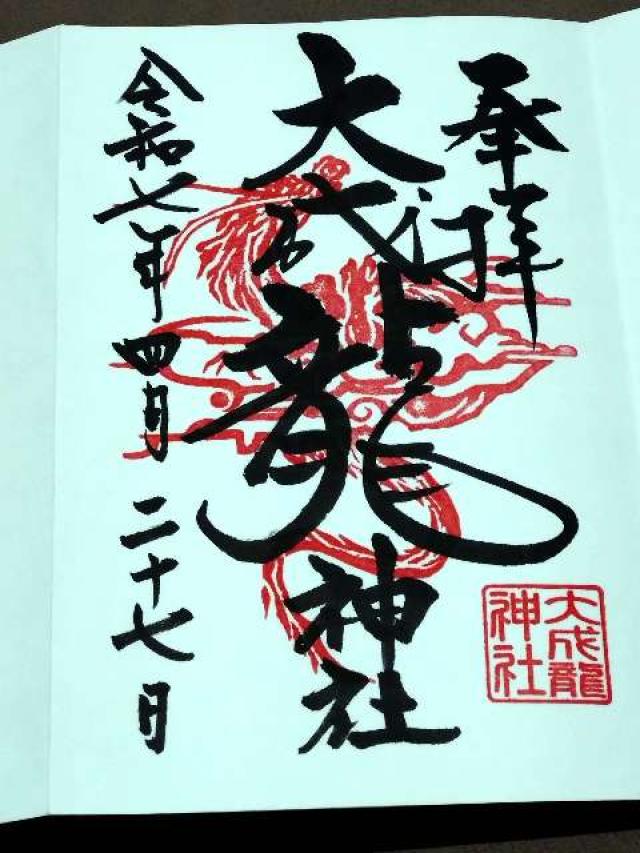 奉拝
大成龍神社
令和七年四月二十七日
大成龍
神社